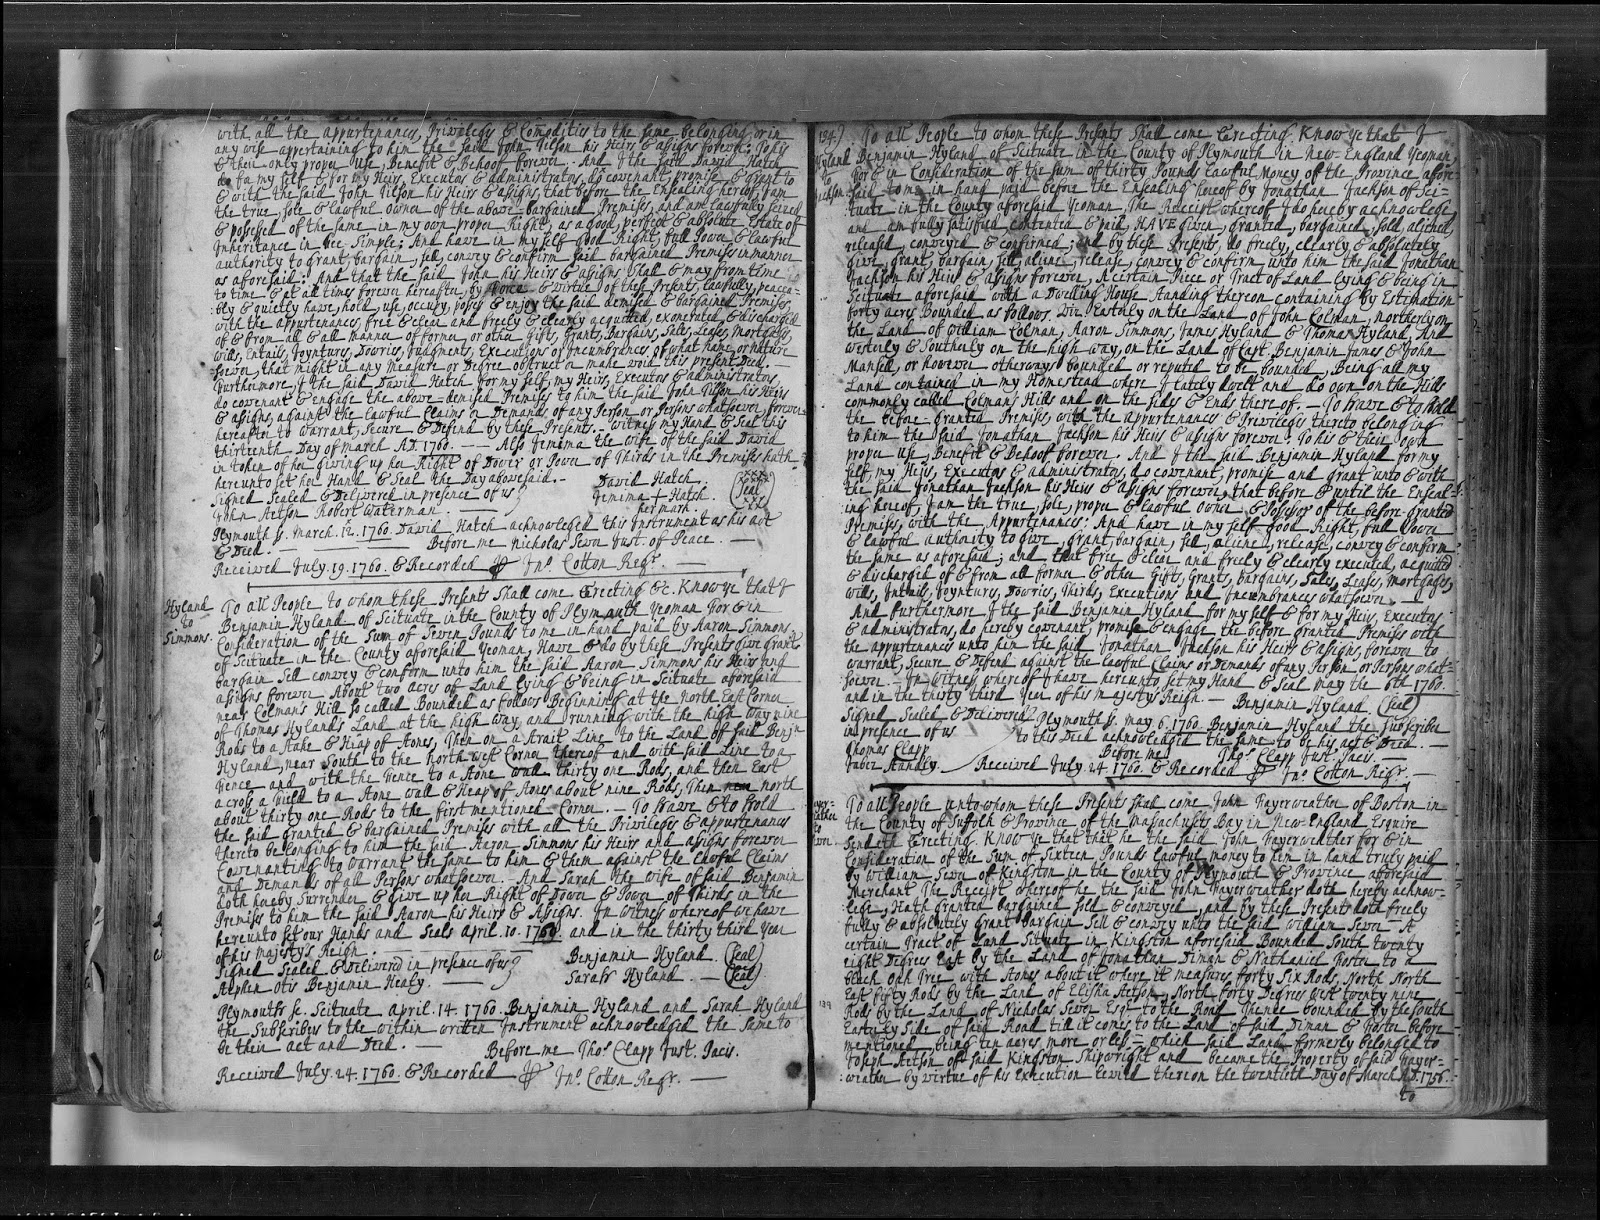 with all the appurtenances, Priviledges & Comodities to the same belonging or in
any wise appertaining to him the said John Tilson his Heirs & assigns forever: To his
& their only proper Use, Benefit & Behoof forever. And I the said David Hatch
do for my self & for my Heirs, Executors & administrators, do covenant, promise & grant to
& with the said John Tilson his Heirs & assigns, that before the Ensealing hereof, I am
the true, sole & lawful owner of the above bargained Premises, and am lawfully seized
& possessed of the same in my own proper Right, as a good, perfect & absolute Estate of
Inheritance in Fee-Simple: And have in my self Good Right, full Power & lawful
authority to grant, bargain, sell, convey & confirm said bargained Premises in manner
as aforesaid: And that the said John his Heirs & assigns shall & may from time
to time & at all times forever hereafter, by Force & virtue of these Presents, lawfully, peacea-
bly & quietly have, hold, use, occupy, posses & enjoy the said demised & bargained Premises,
with the appurtenances, free & clear and freely & clearly acquitted, exonerated & discharged
of & from all & all manner of former or other Gifts, Grants, Bargains, Sales, Leases, Mortgages,
wills, Entails, Joyntures, Dowries, Judgments, Executions or Incumbrances of what name or nature
soever, that might in any measure or Degree obstruct or make void this present Deed. —
Furthermore, I the said David Hatch for my self, my Heirs, Executors & administrators,
do covenant & engage the above-demised Premises to him the said John Tilson his Heirs
& assigns, against the lawful Claims or Demands of any Person or Persons whatsoever, forever
hereafter to warrant, secure & Defend by these Presents. — Witness my Hand & Seal this
thirteenth Day of March AD. 1760. — — Also Jemima the wife of the said David
in token of her giving up her Right of Dower or Power of Thirds in the Premises hath
hereunto set her Hand & Seal the Day abovesaid. — David Hatch. (Seal)
Signed Sealed & Delivered in presence of us Jemima + Hatch.
John Robert Waterman. — her mark. (Seal)
Plymouth ss. March. 12. 1760. David Hatch acknowledged this Instrument as his act
& Deed. — Before me Nicholas Sever Just. of Peace. —
Received July. 19. 1760. & Recorded ⅌ Jno. Cotton Regr. —
Hyland
to
Simmons.
To all People to whom these Presents shall come Greeting &c. Know ye that I
Benjamin Hyland of Scituate in the County of Plymouth Yeoman For & in
Consideration of the Sum of Seven Pounds to me in hand paid by Aaron Simmons
of Scituate in the County aforesaid Yeoman, Have & do by these Presents give grant
bargain sell convey & confirm unto him the said Aaron Simmons his Heirs and
assigns forever About two acres of Land lying & being in Scituate aforesaid
near Colman's Hill so called Bounded as follows Beginning at the North East Corner
of Thomas Hyland's Land at the high way, and running with the high way nine
Rods to a stake & Heap of stones, Then on a strait Line to the Land of said Benja
Hyland, near South to the north west Corner thereof and with said Line to a
Fence, and with the Fence to a stone wall thirty one Rods, and then East
across a Field to a stone wall & Heap of stones about nine Rods, Then north
about thirty one Rods to the first mentioned Corner. — To Have & to Hold
the said granted & bargained Premises with all the Priviledges & appurtenances
thereto belonging to him the said Aaron Simmons his Heirs and assigns forever
Covenanting to warrant the same to him & them against the Lawful Claims
and Demands of all Persons whatsoever. — And Sarah the wife of said Benjamin
doth hereby Surrender & give up her Right of Dower & Power of Thirds in the
Premises to him the said Aaron his Heirs & Assigns. In Witness whereof we have
hereunto set our Hands and Seals April. 10. 1760. and in the thirty third Year
of his majesty's Reign. — Benjamin Hyland. (Seal)
Signed Sealed & Delivered in presence of us Sarah Hyland. — (Seal)
Stephen Otis Benjamin Healy. —
Plymouth ss. Scituate April. 14. 1760. Benjamin Hyland and Sarah Hyland
the Subscribers to the within written Instrument acknowledged the same to
be their act and Deed. — Before me Thos. Clapp Just. Pacis.
Received July. 24. 1760. & Recorded ⅌ Jno. Cotton Regr. —
Hyland
to
Jackson
To all People to whom these Presents shall come Greeting. Know ye that I
Benjamin Hyland of Scituate in the County of Plymouth in New-England Yeoman,
For & in Consideration of the sum of thirty Pounds Lawful Money of the Province afore-
said to me in hand paid before the Ensealing hereof by Jonathan Jackson of Sci-
tuate in the County aforesaid Yeoman, The Receipt whereof I do hereby acknowledge
and am fully satisfied contented & paid, HAVE given, granted, bargained, sold, aliened,
released, conveyed & confirmed; and by these Presents, do freely, clearly & absolutely
give, grant, bargain, sell, aliene, release, convey & confirm unto him the said Jonathan
Jackson his Heirs & assigns forever, A certain Piece or Tract of Land lying & being in
Scituate aforesaid with a Dwelling House standing thereon containing by Estimation
forty acres Bounded as follows. Viz. Easterly on the Land of John Colman, northerly on
the Land of William Colman, Aaron Simmons, James Hyland & Thomas Hyland, And
Westerly & Southerly on the high way, on the Land of Capt. Benjamin James & John
Mansell, or however otherways bounded or reputed to be bounded, Being all my
Land contained in my Homestead where I lately dwelt and do own on the Hills
commonly called Colman's Hills and on the sides & Ends thereof. — To Have & to Hold
the before granted Premises, with the appurtenances & Priviledges thereto belonging
to him the said Jonathan Jackson his Heirs & assigns forever: To his & their own
proper use, Benefit & Behoof forever. And I the said Benjamin Hyland for my
self, my Heirs, Executors & administrators, do covenant, promise and grant unto & with
the said Jonathan Jackson his Heirs & assigns forever, that before & until the Enseal-
ing hereof, I am the true, sole, proper & lawful owner & Possessor of the before-granted
Premises, with the Appurtenances: And have in my self good Right, full Power
& lawful authority to give, grant, bargain, sell, aliene, release, convey & confirm
the same as aforesaid; and that free & clear and freely & clearly executed, acquitted
& discharged of & from all former & other Gifts, Grants, Bargains, Sales, Leases, mortgages,
wills, Intails, Joyntures, Dowries, Thirds, Executions and Incumbrances whatsoever. —
And Furthermore I the said Benjamin Hyland for my self & for my Heirs, Executors
& administrators, do hereby covenant, promise & engage the before granted Premises with
the appurtenances unto him the said Jonathan Jackson his Heirs & assigns, forever to
warrant, secure & Defend against the lawful Claims or Demands of any Person or Persons what-
soever. — In Witness whereof I have hereunto set my Hand & Seal May the 6th 1760.
and in the thirty third Year of his majesty's Reign. — Benjamin Hyland. (Seal)
Signed Sealed & Delivered Plymouth ss. May 6. 1760. Benjamin Hyland the Subscriber
in presence of us to this Deed acknowledged the same to be his act & Deed. —
Thomas Clapp Before me Thos. Clapp Just. Pacis. —
Received July. 24. 1760. & Recorded ⅌ Jno. Cotton Regr. —
To all People unto whom these Presents shall come John Fayerweather of Boston in
the County of Suffolk & Province of the Massachusets Bay in New-England Esquire
Sendeth Greeting. Know Ye that that he the said John Fayerweather for & in
Consideration of the Sum of Sixteen Pounds lawful money to him in hand truly paid
by William Sever of Kingston in the County of Plymouth & Province aforesaid
Merchant The Receipt whereof he the said John Fayerweather doth hereby acknow-
ledge, Hath Granted bargained sold & conveyed, and by these Presents doth freely
fully & absolutely grant bargain sell & convey unto the said William Sever A
certain Tract of Land Situate in Kingston aforesaid Bounded South twenty
eight Degrees East by the Land of Jonathan Diman & Nathaniel Foster to a
black Oak Tree with stones about it where it measures forty Six Rods, North North
East fifty Rods by the Land of Elisha Stetson, North forty Degrees west twenty nine
Rods by the Land of Nicholas Sever Esqr to the Road Thence bounded by the South
Easterly Side of said Road till it comes to the Land of said Diman & Foster before
mentioned, being ten acres more or less — which said Land formerly belonged to
Joseph Stetson of said Kingston Shipwright and became the Property of said Fayer-
weather by virtue of his Execution levied thereon the twentieth Day of March AD. 1756.
to